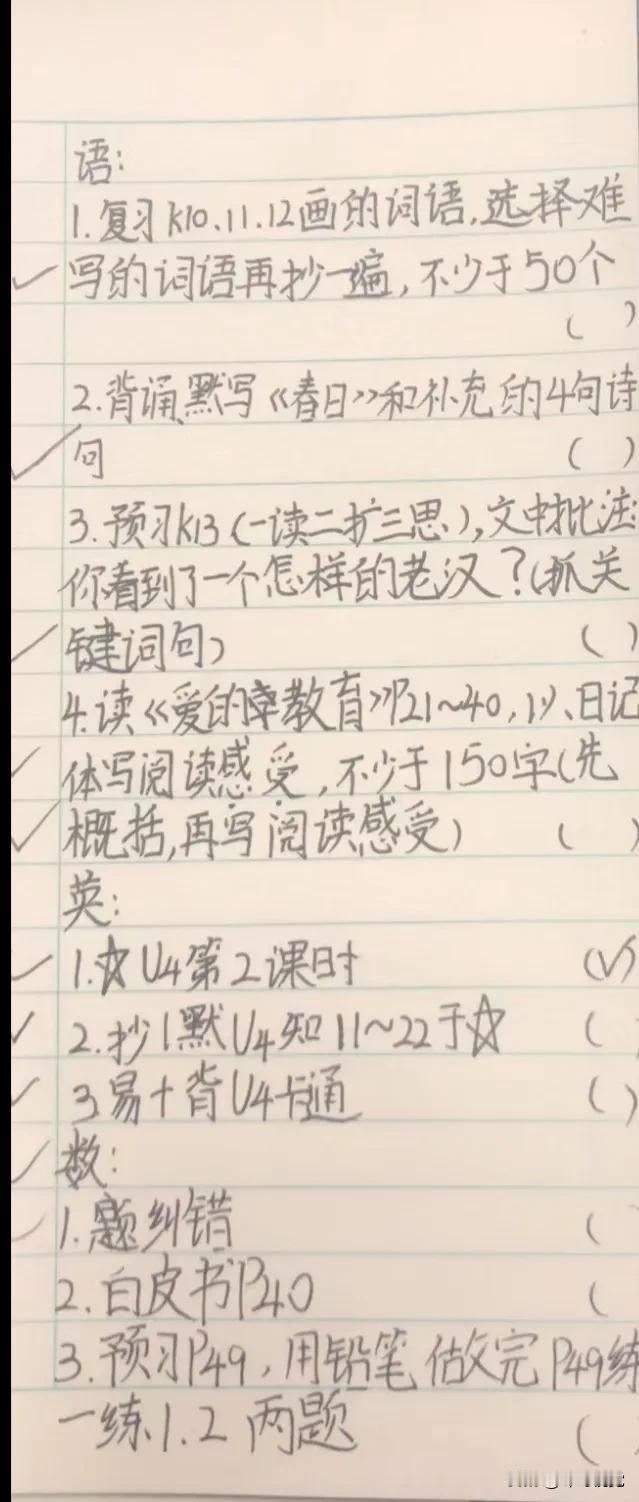 语:
1.复习k10.11.12画的词语,选择难
写的词语再抄一遍,不少于50个
( )
2.背诵默写《春日》和补充的4句诗
句 ( )
3.预习k13(一读二扩三思),文中批注
你看到了一个怎样的老汉?(抓关
键词句) ( )
4.读《爱的教育》P21~40,1)、日记
体写阅读感受,不少于150字(先
概括,再写阅读感受) ( )
英:
1.☆U4第2课时 (√)
2.抄1默U4知11~22于☆ (
3.易+背U4卡通 ( )
数:
1.题纠错 (
2.白皮书P40 (
3.预习P49,用铅笔做完P49练
一练1.2两题 (